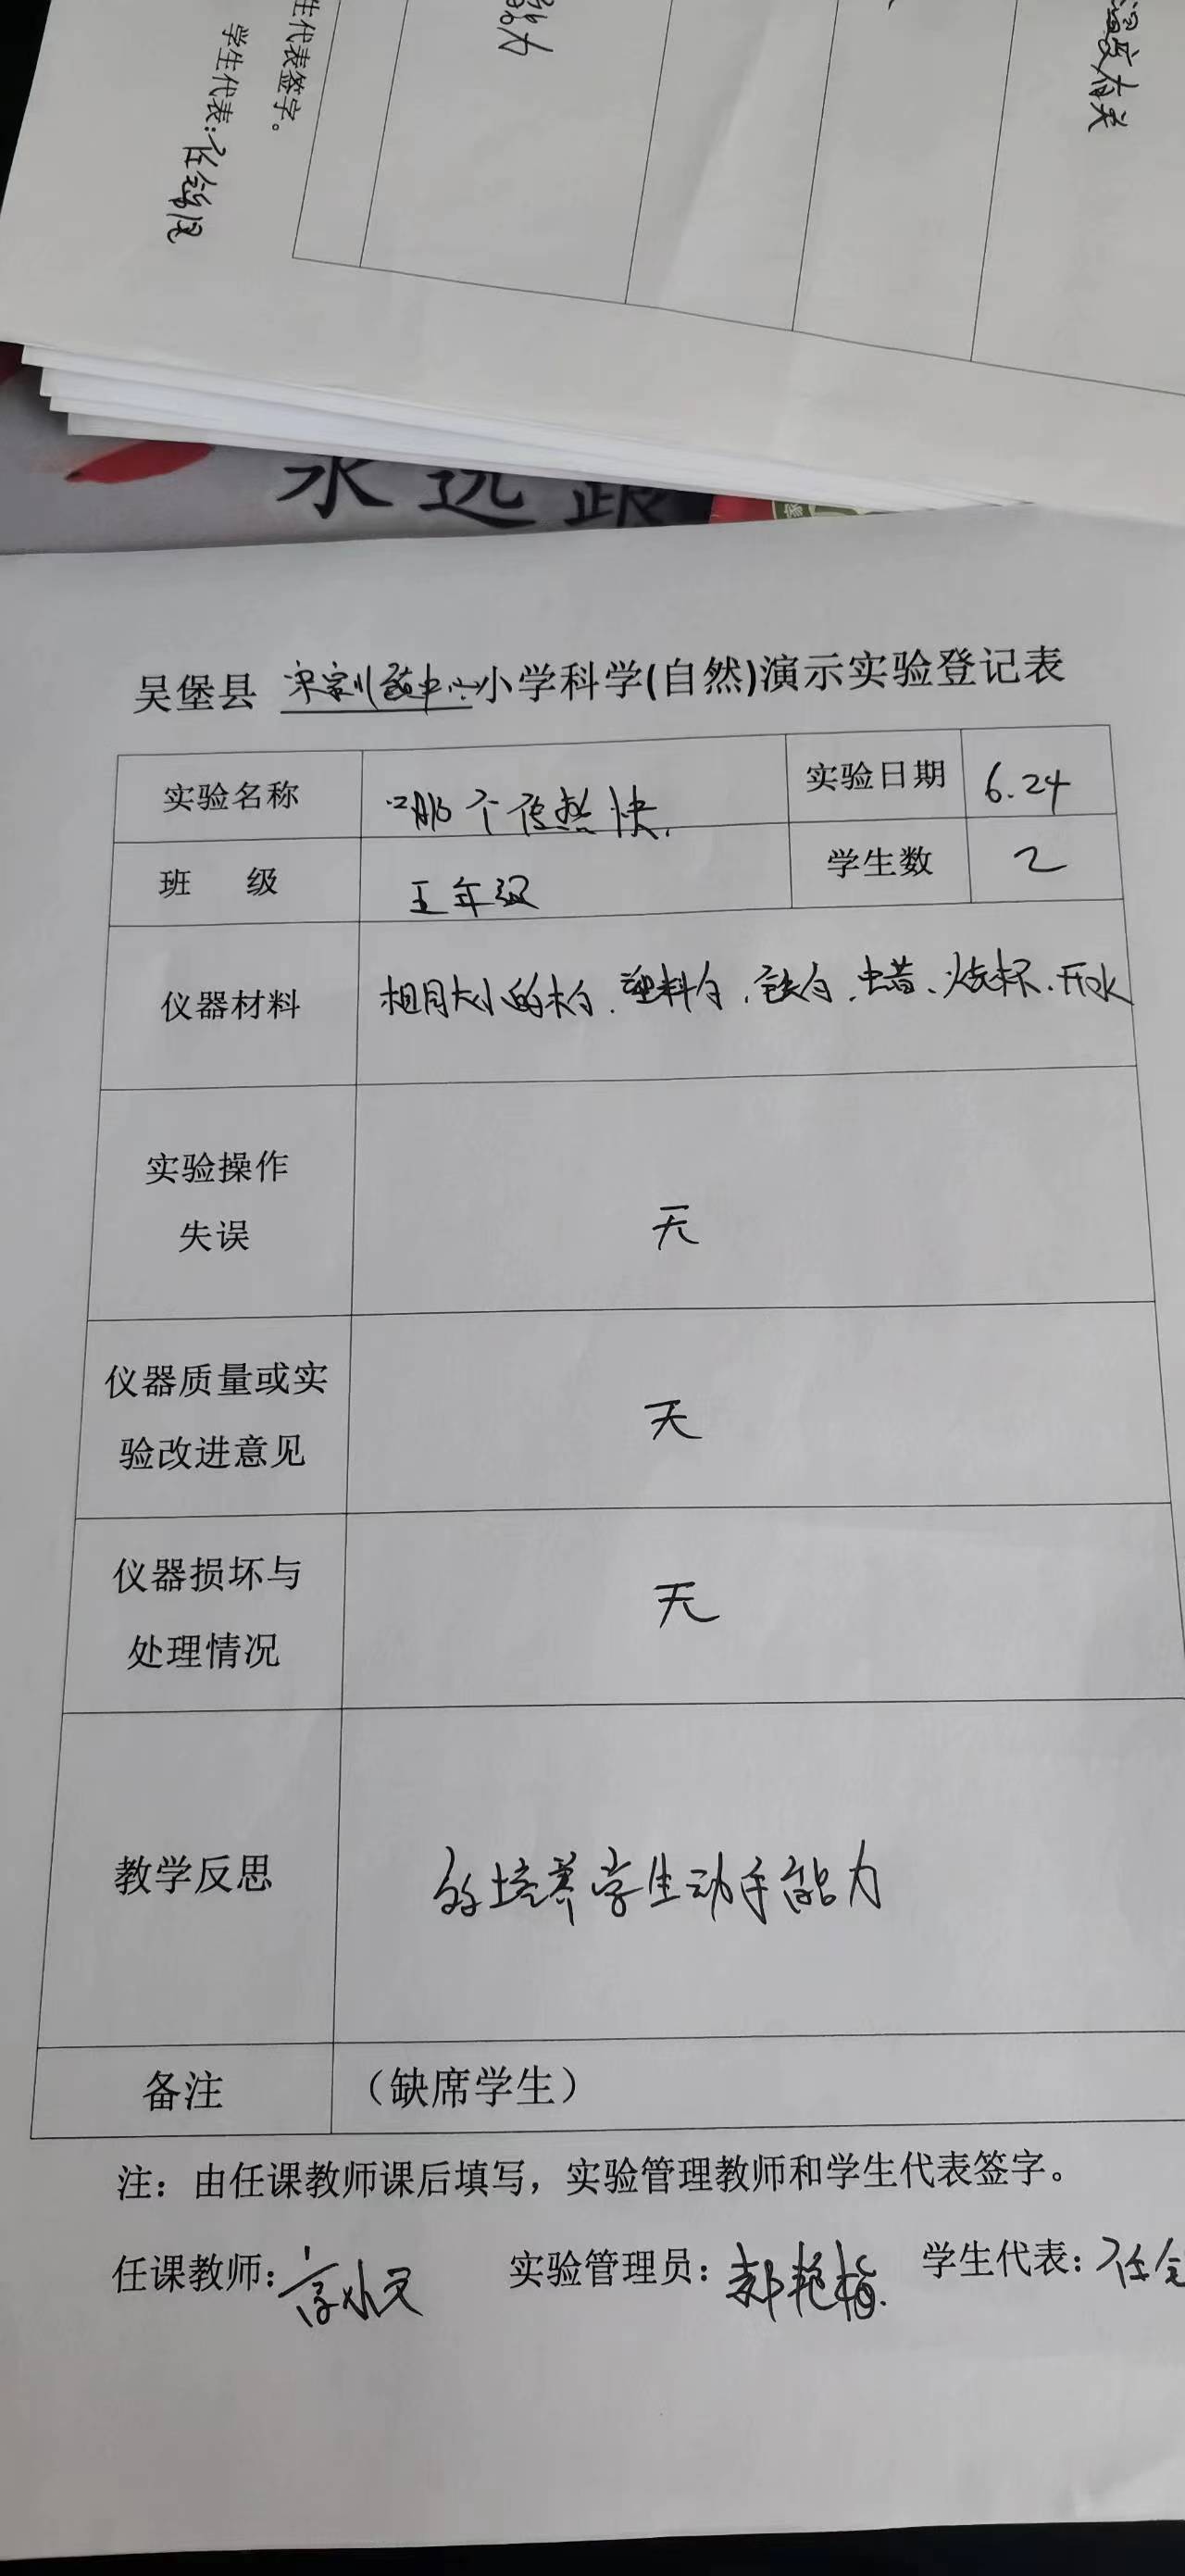 温度有关
能力
生代表签字。
学生代表:任
永远跟
吴堡县 宋家川镇中心小学科学(自然)演示实验登记表
实验名称 哪个传热快. 实验日期 6.24
班 级 五年级 学生数 2
仪器材料 相同大小的木勺.塑料勺.铁勺.蜡.烧杯.开水
实验操作
失误 无
仪器质量或实
验改进意见 无
仪器损坏与
处理情况 无
教学反思 培养学生动手能力
备注 (缺席学生)
注: 由任课教师课后填写,实验管理教师和学生代表签字。
任课教师: 实验管理员:郝艳梅. 学生代表:任